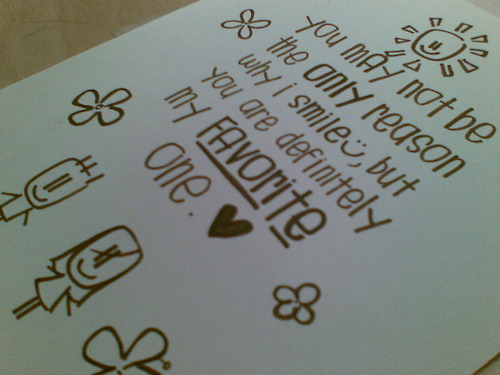 you may not be
the only reason
why i smile, but
you are definitely
my FAVOrite
One.